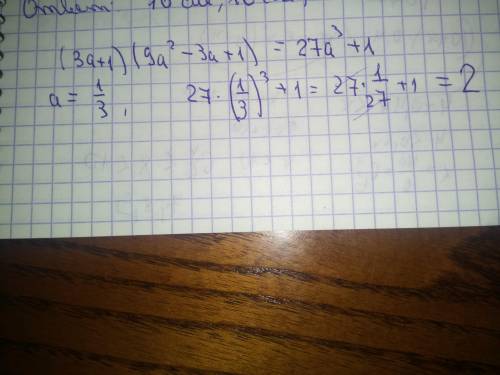 Ответ: 10 см,
(3a+1)(9a² - 3a + 1) = 27a³ + 1
a = 1/3, 27 · (1/3)³ + 1 = 27 · 1/27 + 1 = 2